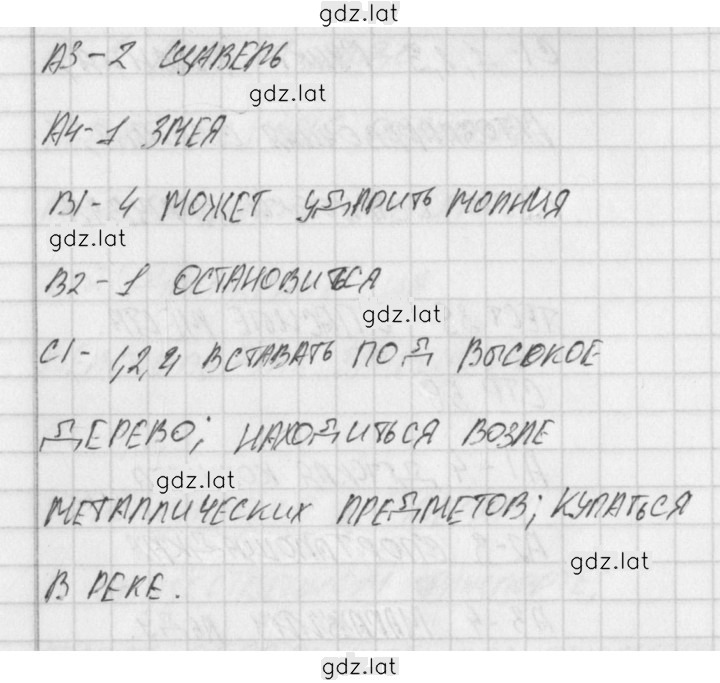 gdz.lat
А3-2 ЩАВЕЛЬ
gdz.lat
А4-1 ЗМЕЯ
В1-4 МОЖЕТ УДАРИТЬ МОЛНИЯ
gdz.lat
В2-1 ОСТАНОВИТЬСЯ
gdz.lat
С1- 1,2,4 ВСТАВАТЬ ПОД ВЫСОКОЕ
ДЕРЕВО; НАХОДИТЬСЯ ВОЗЛЕ
gdz.lat
МЕТАЛЛИЧЕСКИХ ПРЕДМЕТОВ; КУПАТЬСЯ
gdz.lat
В РЕКЕ.
gdz.lat